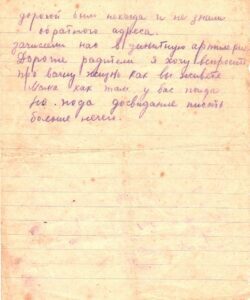 дорогой был некогда и не знали
обратного адреса.
записали нас в зенитную артилери
Дорогие родители я хочу вспросить
про вашу жизнь как вы живете
Мама как там у вас погода
но пода досвидание писать
больше нечего.